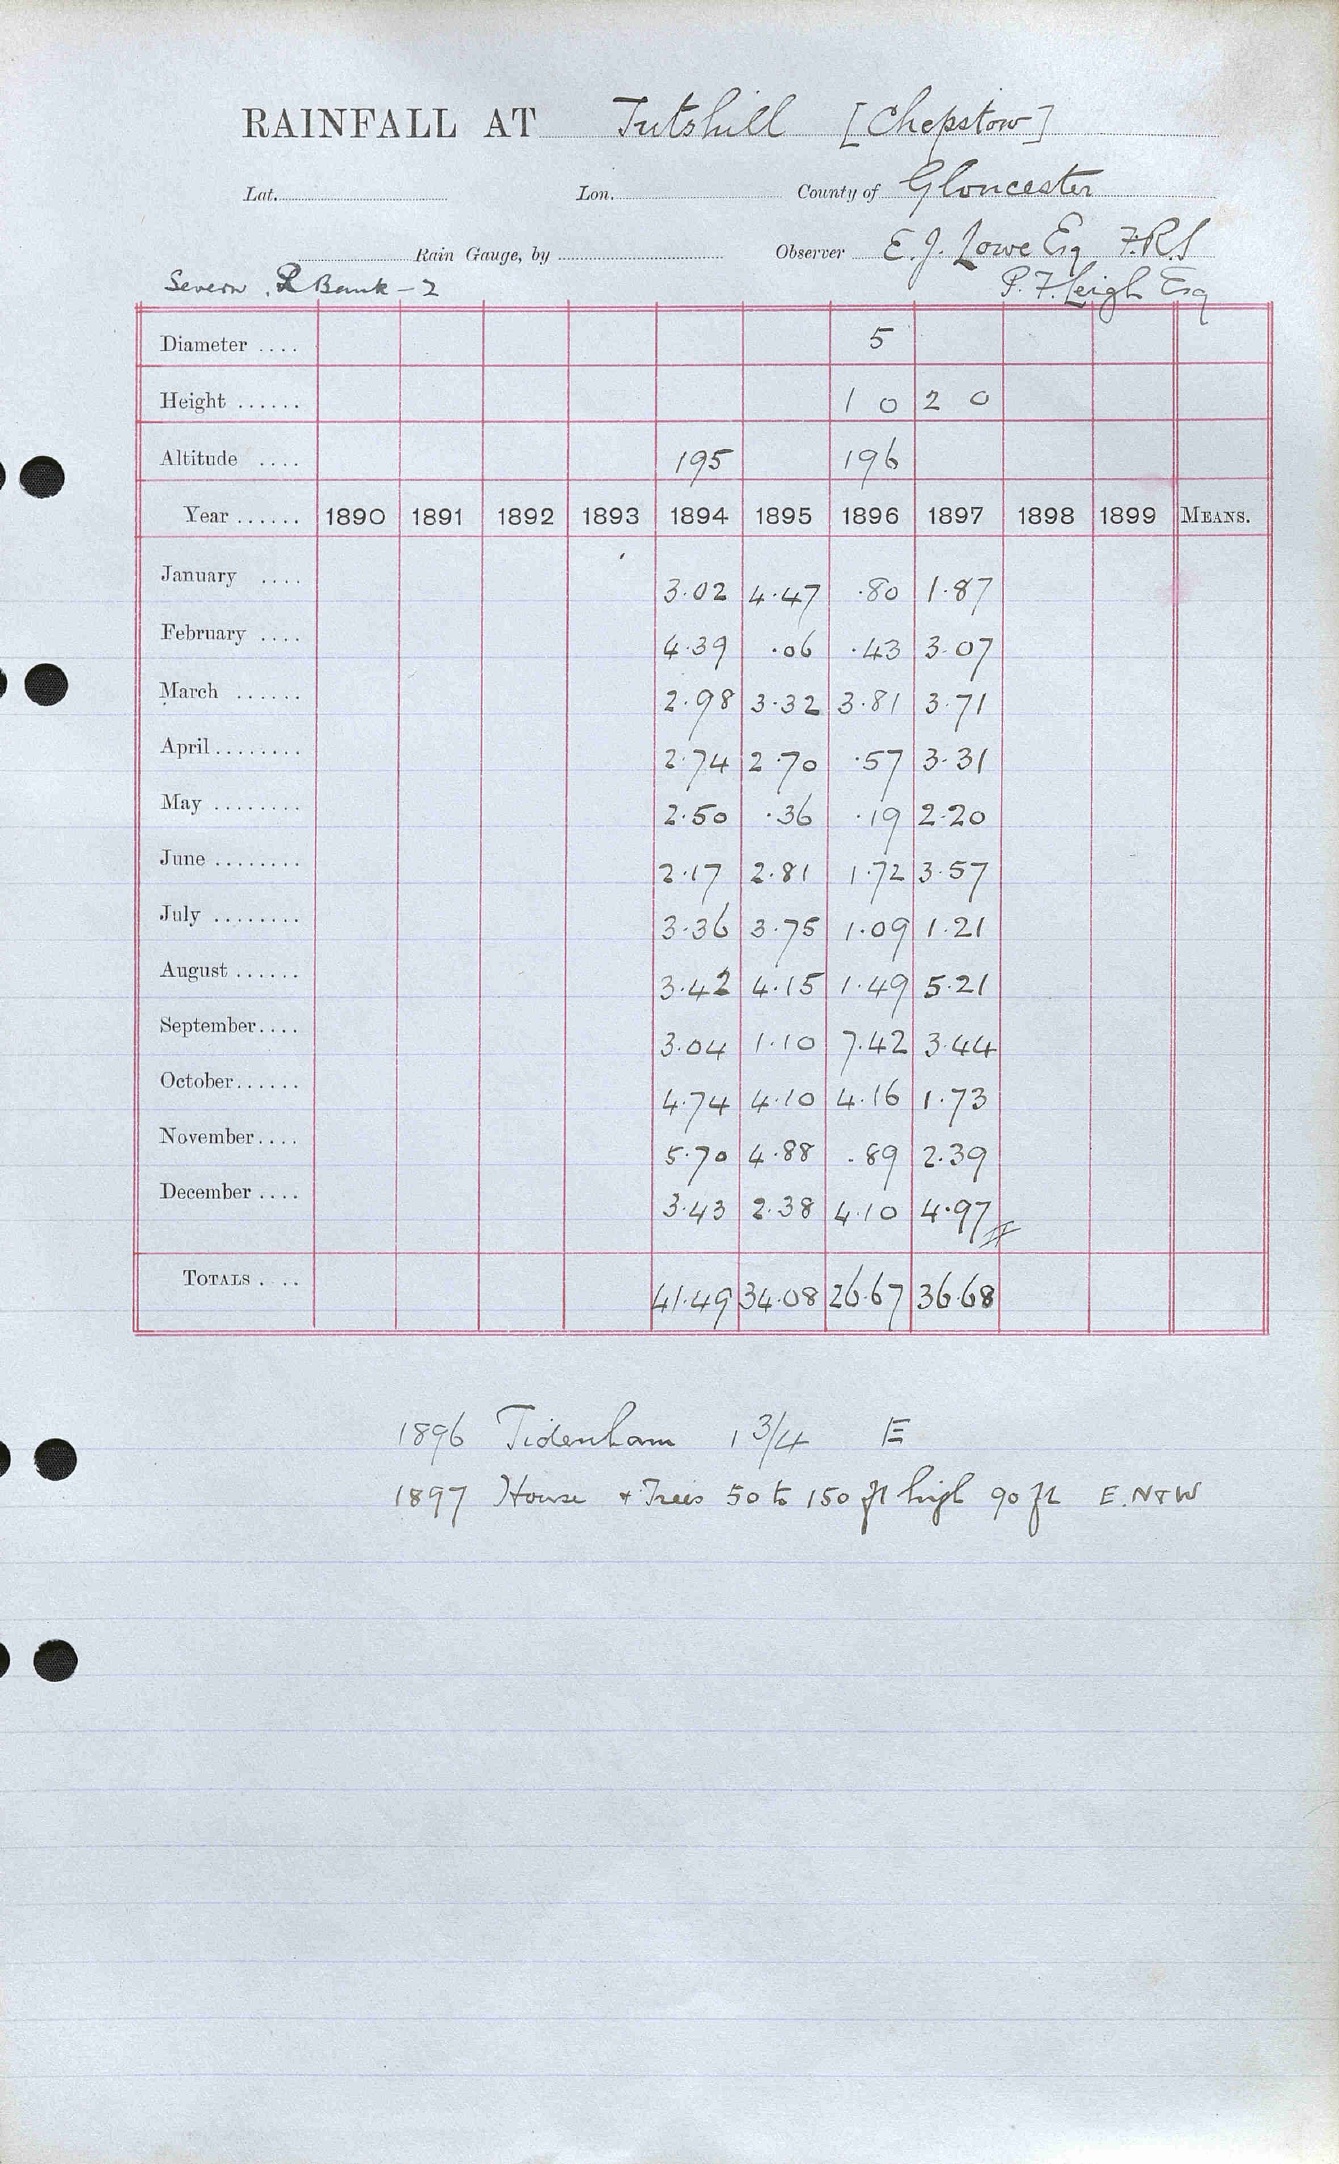 RAINFALL AT Tutshill [Chepstow]
Lat. Lon. County of Gloucester
Rain Gauge, by Observer E. J. Lowe Esq F.R.S
Severn, R Bank - 2 P. F. Leigh Esq
Diameter .... 5
Height ...... 1 0 2 0
Altitude .... 195 196
Year ...... 1890 1891 1892 1893 1894 1895 1896 1897 1898 1899 MEANS.
January .... 3.02 4.47 .80 1.87
February .... 4.39 .06 .43 3.07
March ...... 2.98 3.32 3.81 3.71
April ........ 2.74 2.70 .57 3.31
May ........ 2.50 .36 .19 2.20
June ........ 2.17 2.81 1.72 3.57
July ........ 3.36 3.75 1.09 1.21
August ...... 3.42 4.15 1.49 5.21
September .... 3.04 1.10 7.42 3.44
October ...... 4.74 4.10 4.16 1.73
November .... 5.70 4.88 .89 2.39
December .... 3.43 2.38 4.10 4.97
TOTALS .... 41.49 34.08 26.67 36.68
1896 Tidenham 1 3/4 E
1897 House + Trees 50 to 150 ft high 90 ft E. N + W